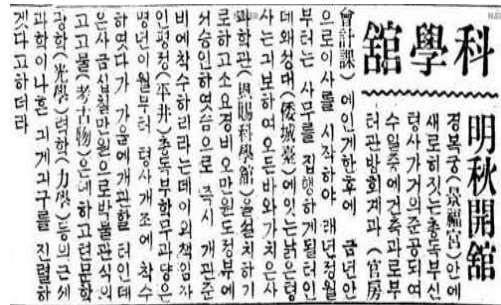 科學舘
明秋開舘
경복궁(景福宮)안에
새로히짓는총독부신
텽사가거의준공되여
수일중에건축과로부
터관방회계과 (官房
會計課) 에인계한후에 금년안
으로이사를 시작하야 래년정월
부터는 사무를 집행하게될터인
데왜성대(倭城臺)에잇는낡은텽
사는긔보하여 오든바와가치은사
과학관(恩賜科學舘)을설치하기
로하고소요경비 오만원도정부에
서승인하엿슴으로 즉시 개관준
비에착수하리라는데이외책임자
인평정(平井)총독부학무과댱은
명년이월부터 텽사개조에 착수
하엿다가 가을에개관할 터인데
은사금십칠만원으로박물관식의
고고물(考古物)은데하고련문학
광학(光學)력학(力學)등의근세
과학이나흔 긔계긔구를 진렬하
겟다고하더라